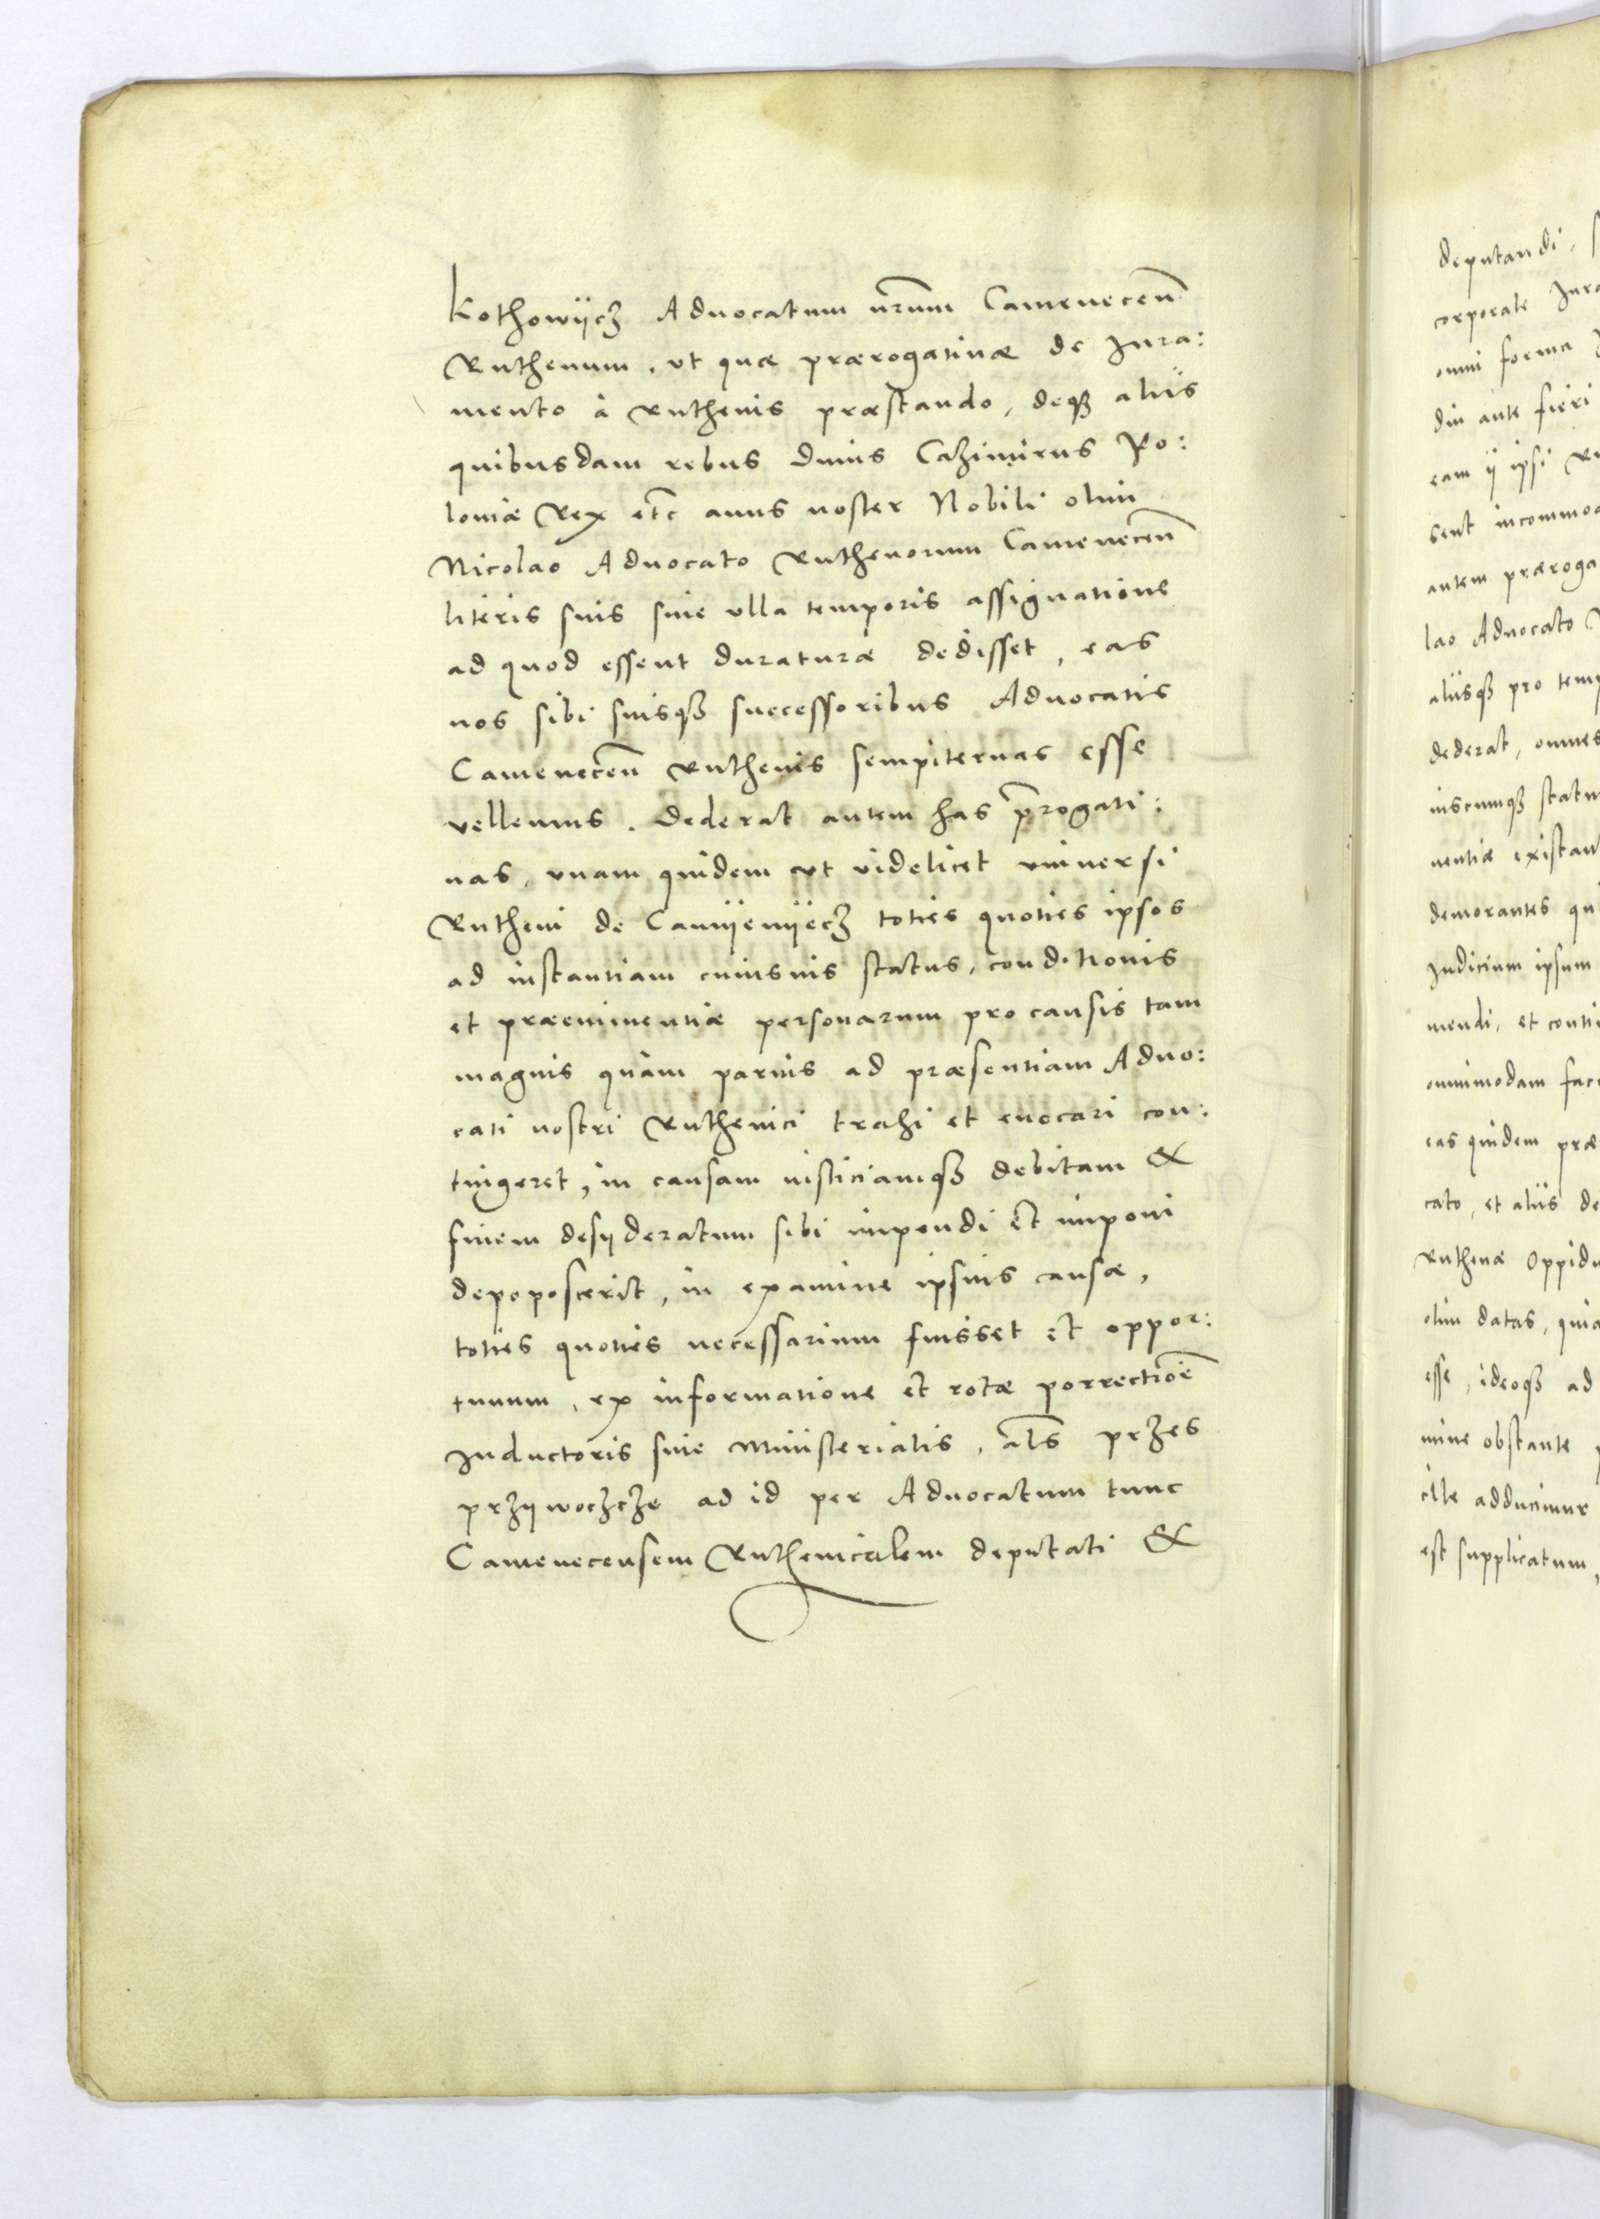 Kothowÿcz Aduocatum nr̄um Camenecen̄
Ruthenum, vt quæ prærogatiuæ de Jura:
mento à Ruthenis præstando, deq3 alijs
quibusdam rebus Diuus Cazimirus Po:
loniæ Rex etc̄ auus noster Nobili olim
Nicolao Aduocato Ruthenorum Camenecen̄
literis suis sine ulla temporis assignatione
ad quod essent duraturæ dedisset, eas
nos sibi suisq3 successoribus Aduocatis
Camenecen̄ Ruthenis sempiternas esse
vellemus. Dederat autem has p̄rogati:
uas, vnam quidem vt videlicet vniuersi
Rutheni de Camÿenÿecz toties quoties ipsos
ad instantiam cuiusuis status, conditionis
et præeminentiæ personarum pro causis tam
magnis quàm paruis ad præsentiam Aduo:
cati nostri Ruthenici trahi et euocari con:
tingeret, in causam iusticiamq3 debitam &
finem desyderatum sibi impendi et imponi
depoposcerit, in examine ipsius causæ,
toties quoties necessarium fuisset et oppor:
tunum, ex informatione et rotæ porrectiōe
Inductoris siue Ministerialis, al̄s przes
przÿwoczcze ad id per Aduocatum tunc
Camenecensem Ruthenicalem deputati &
deputandi,
corporale
omni forma
diu ante fieri
eam ij ipsi
sent
autem
lao Aduocato
alijsq3 pro
dederat, omnes
uiscumq3
nentiæ
demorantes
Judicium ipsum
mendi, et
omnimodam
eas quidem
cato, et alijs de
Ruthenæ
olim datas, quia
esse, ideoq3 ad
mine obstante
ille adducimur
est supplicatum,